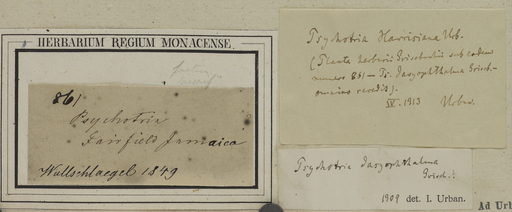 HERBARIUM REGIUM MONACENSE.
861
Psychotria
Fairfield Jamaica
Wullschlaegel 1849
Psychotria Harrisiana Urb.
(Planta herbarii Grisebachii sub eodem
numero 861 = Ps. dasyophthalma Griseb.
omnino recedit).
VI. 1913 Urban.
Psychotria dasyophthalma
Griseb.!
1909 det. I. Urban.
Ad Urb